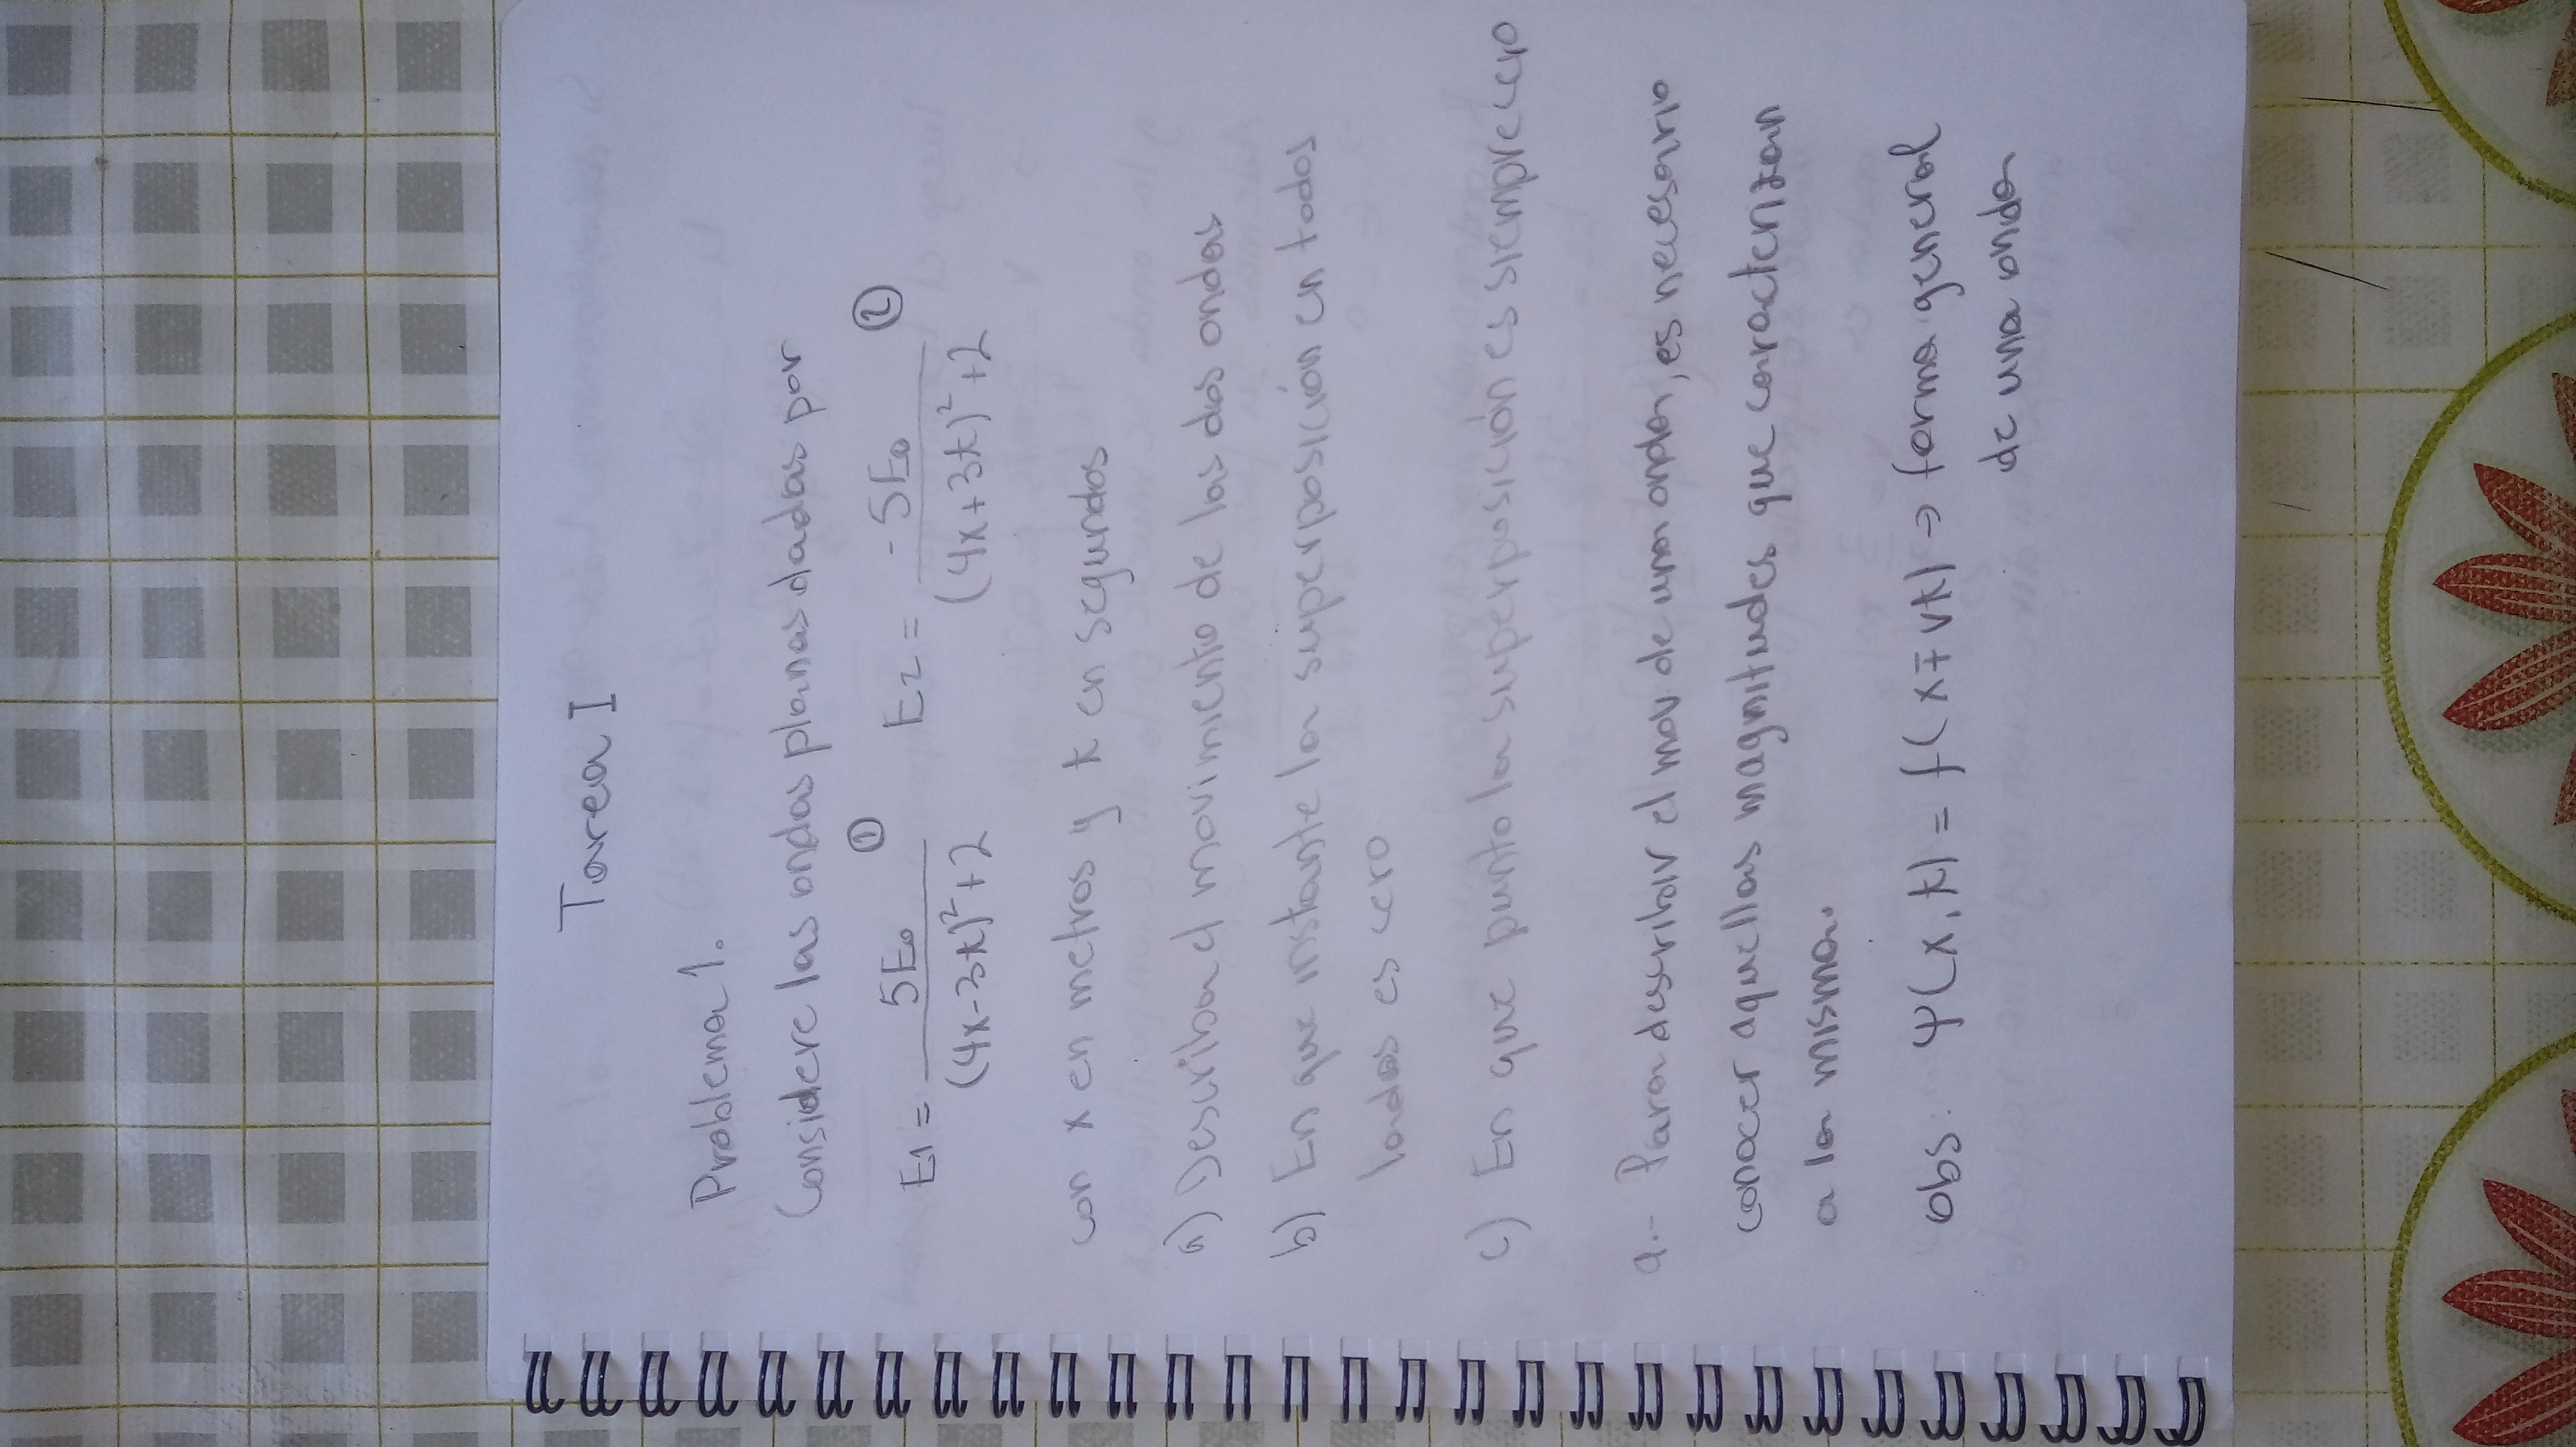 Tarea I
Problema 1.
Considere las ondas planas dadas por
E1 = 5E₀ / (4x-3t)² + 2 ① E2 = -5E₀ / (4x+3t)² + 2 ②
con x en metros y t en segundos
a) Describa el movimiento de las dos ondas
b) En que instante la superposición en todos
lados es cero
c) En que punto la superposición es siempre cero
a.- Para describir el mov de una onda, es necesario
conocer aquellas magnitudes que caracterizan
a la misma.
obs: Ψ(x,t) = f(x∓vt) → forma general
de una onda